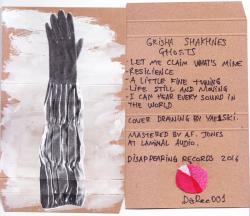 GRISHA SHAKHNES
GHOSTS
- LET ME CLAIM WHAT'S MINE
- RESILIENCE
- A LITTLE FINE TUNING
- LIFE STILL AND MOVING
- I CAN HEAR EVERY SOUND IN
THE WORLD
COVER DRAWING BY
MASTERED BY A.F. JONES
AT LAMINAL AUDIO.
DISAPPEARING RECORDS 2016
DisRec001